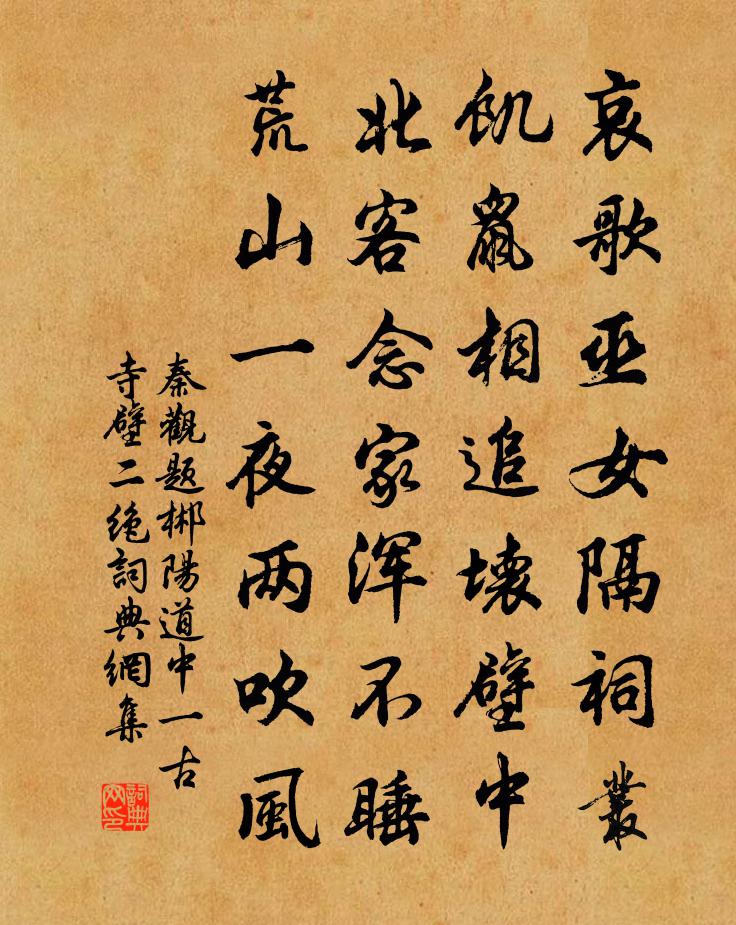 哀歌巫女隔祠叢
飢鼠相追壞壁中
北客念家浑不睡
荒山一夜两吹風
秦觀題郴陽道中一古
寺壁二絶詞典網集
詞典網印